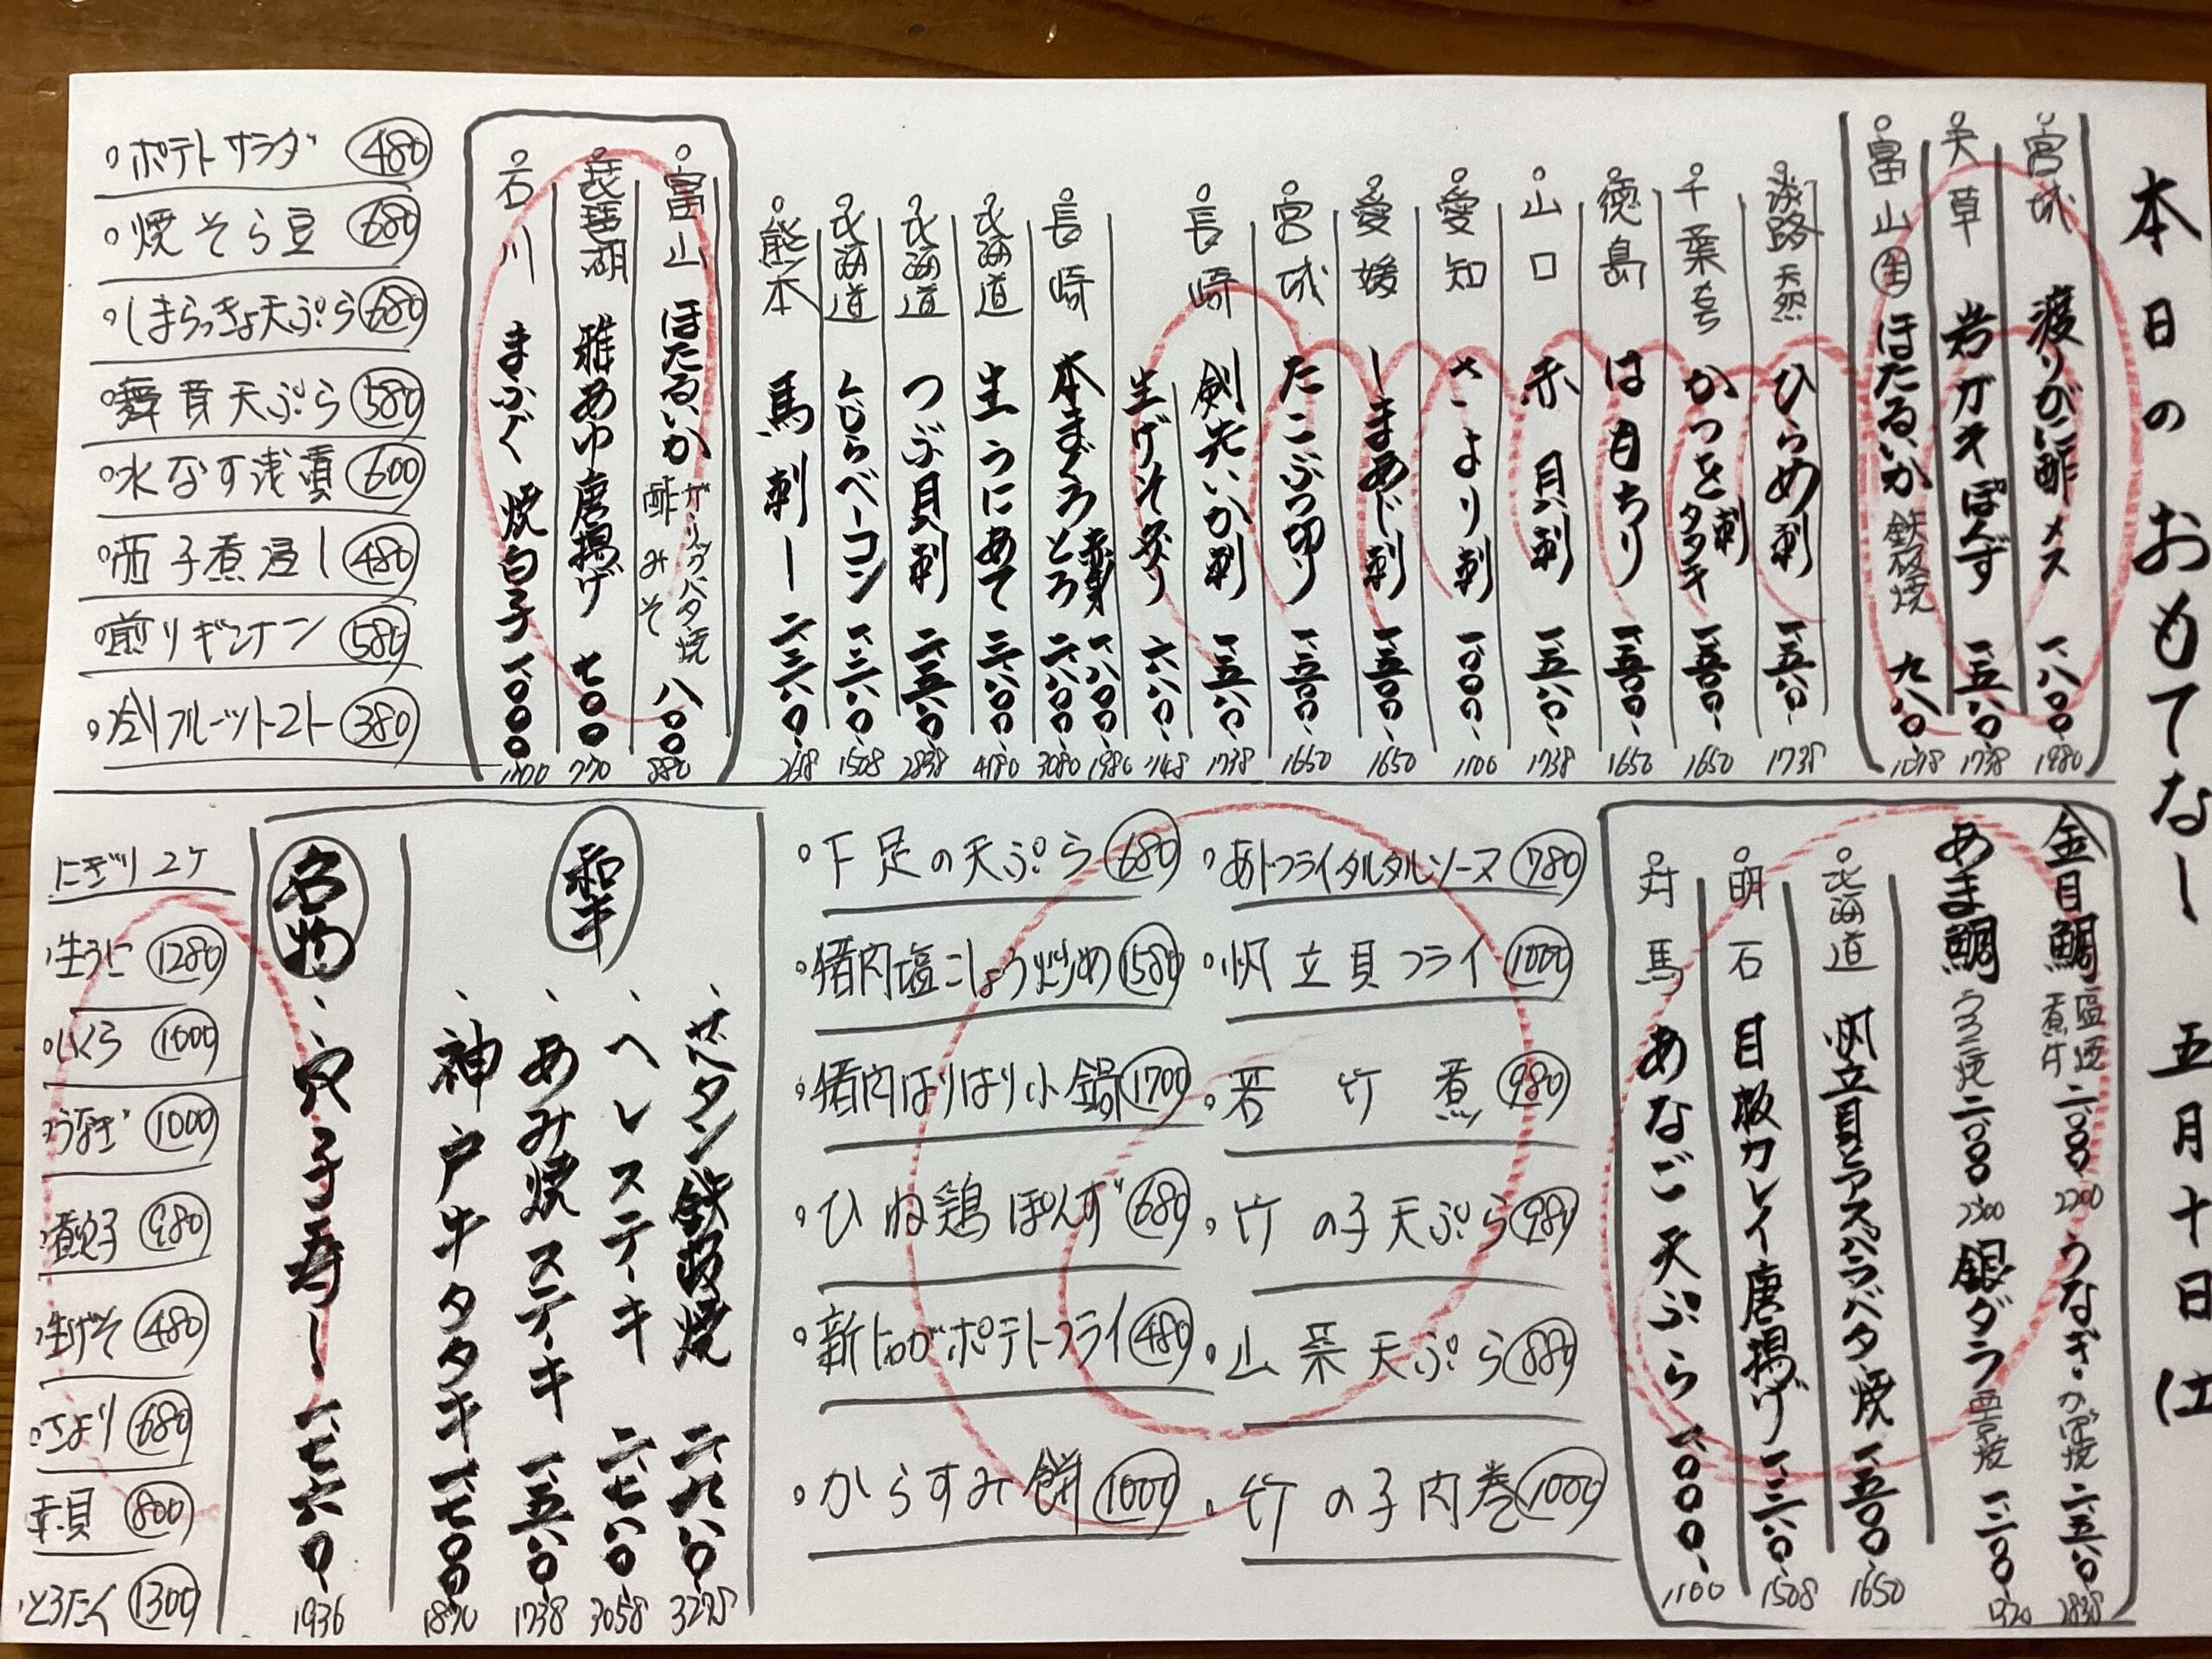 本日のおもてなし 五月十日は
宮城 渡りがに酢 メス 一、八〇〇、 1980
天草 岩ガキぽんず 一、五八〇、 1738
富山 生 ほたるいか 鉄板焼 九八〇、 1078
淡路 天然 ひらめ刺 一、五八〇、 1738
千葉 かつを 刺 タタキ 一、五〇〇、 1650
徳島 はも ちり 一、五〇〇、 1650
山口 赤貝刺 一、五八〇、 1738
愛知 さより刺 一、〇〇〇、 1100
愛媛 しまあじ刺 一、五〇〇、 1650
宮城 たこぶつ切り 一、五〇〇、 1650
長崎 剣先いか刺 一、五八〇、 1738
生げそ炙り 六八〇、 748
長崎 本まぐろ 赤身 一、八〇〇、 1980
とろ 二、八〇〇、 3080
北海道 生うにあて 三、八〇〇、 4180
北海道 つぶ貝刺 二、五八〇、 2838
北海道 くじらベーコン 一、三八〇、 1508
熊本 馬刺し 二、三八〇、 2618
富山 ほたるいか ガーリックバタ焼 酢みそ 八〇〇 880
琵琶湖 稚あゆ唐揚げ 七〇〇 770
石川 まふぐ 焼白子 一、〇〇〇 1100
ポテトサラダ 480
焼そら豆 680
しまらっきょ天ぷら 680
舞茸天ぷら 580
水なす浅漬 600
煮浸し 480
煎りギンナン 580
冷しフルーツトマト 380
金目鯛 塩焼 煮付 二、〇〇〇 2200
うなぎ・かば焼 二、五八〇、 2838
あま鯛 うろこ焼 二、〇〇〇 2200
銀ダラ 西京焼 一、二〇〇、 1320
北海道 帆立貝とアスパラバタ焼 一、五〇〇、 1650
明石 目板カレイ唐揚げ 一、三八〇、 1508
対馬 あなご天ぷら 一、〇〇〇、 1100
あじフライタルタルソース 780
帆立貝フライ 1000
若竹煮 980
竹の子天ぷら 980
山菜天ぷら 880
竹の子肉巻 1000
下足の天ぷら 680
猪肉塩こしょう炒め 1580
猪肉はりはり小鍋 1700
ひね鶏ぽんず 680
新じゃがポテトフライ 480
からすみ餅 1000
和牛
、芝タン鉄板焼 二、九八〇、 3278
、ヘレステーキ 二、七八〇、 3058
、あみ焼ステーキ 一、五八〇、 1738
、神戸牛タタキ 一、七〇〇、 1870
名物
、穴子寿し 一、七六〇、 1936
にぎり 2ケ
生うに 1280
いくら 1000
うなぎ 1000
煮穴子 980
生げそ 480
さより 680
赤貝 800
とろたく 1300